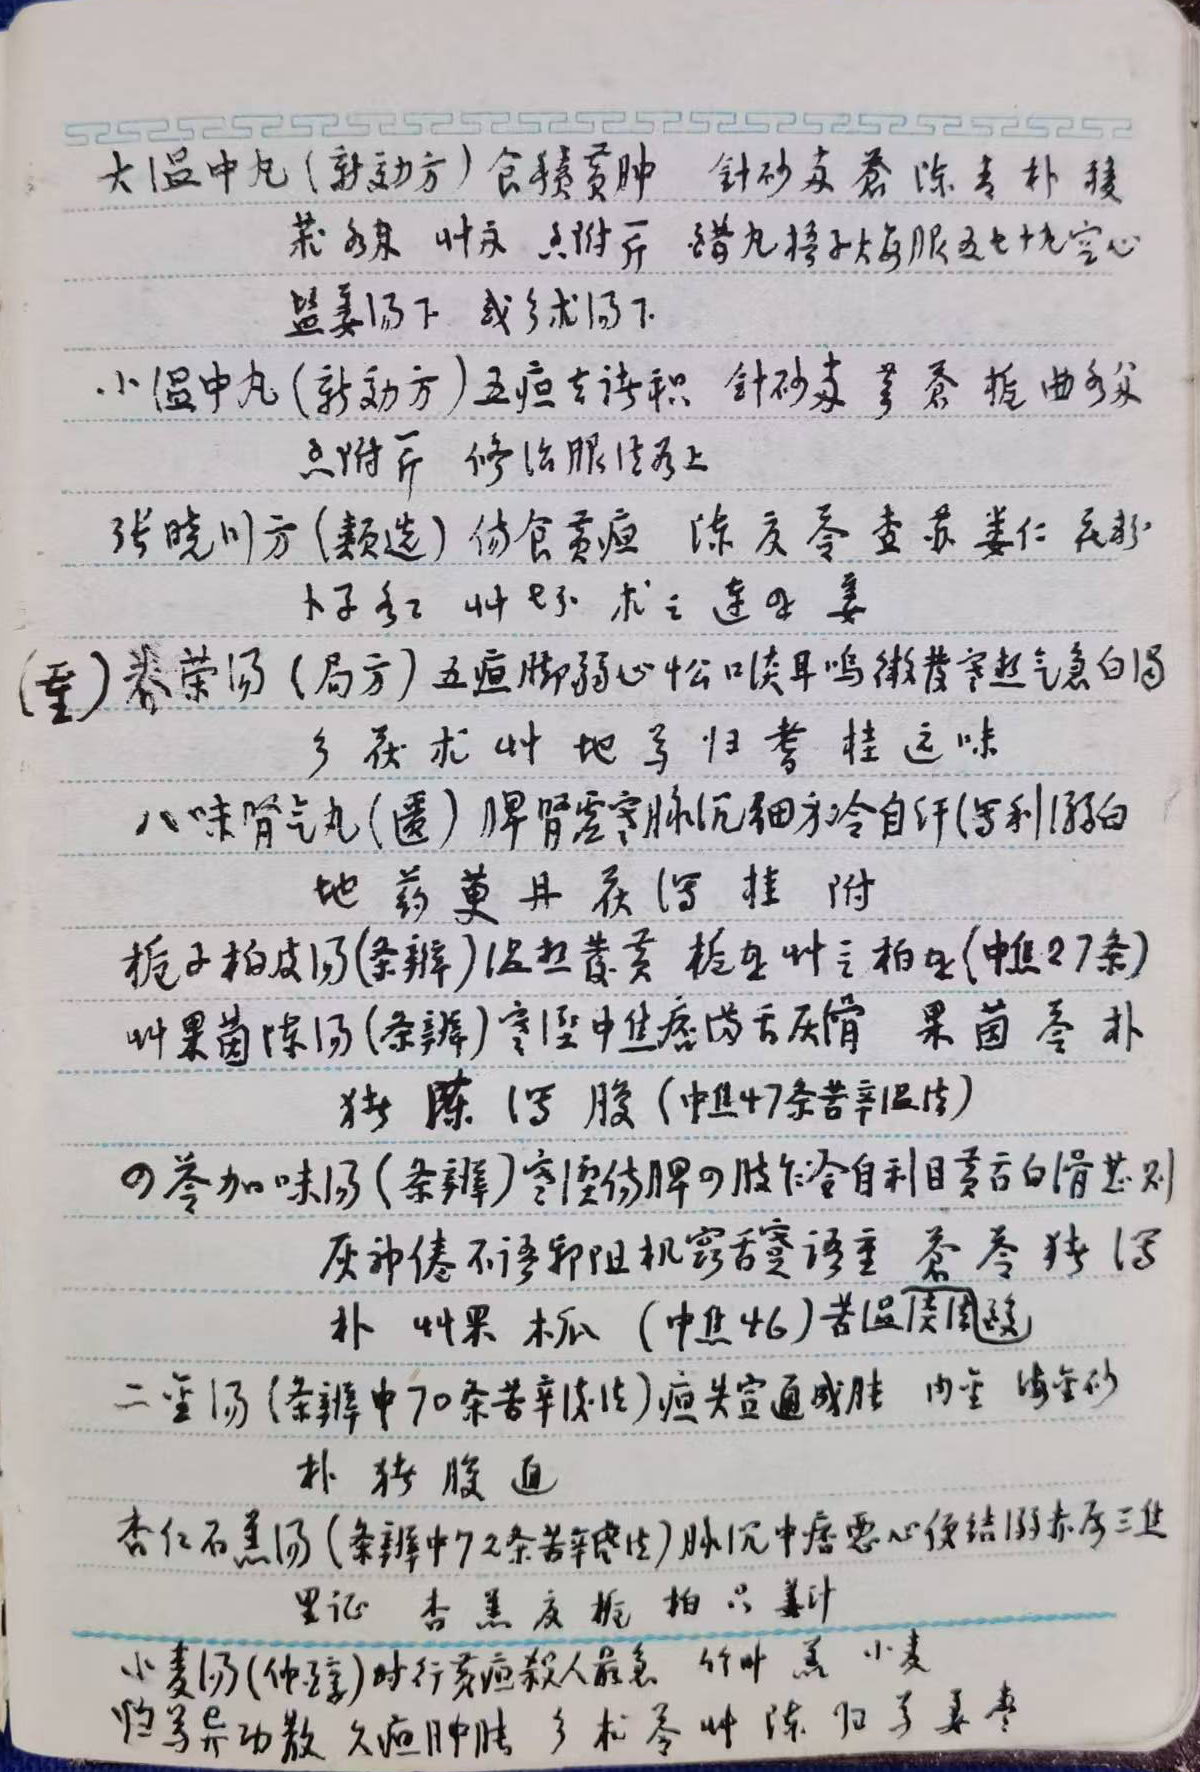 大温中丸（新効方）食积黄肿 针砂 苍 陈 青 朴 棱
莪 各 草 附 斤 醋丸梧子大每服五七十丸空心
盐姜汤下 或 术汤下
小温中丸（新効方）五疸去诸积 针砂 苍 栀 曲
附 斤 修治服法 上
张晓川方（类选）伤食黄疸 陈 夏 苓 查 苏 蒌仁 花粉
卜子 红 草 术 连 姜
（重）养荣汤（局方）五疸脚弱心忪口淡耳鸣微发寒热气急白浊
参 茯 术 草 地 芍 归 耆 桂 远 味
八味肾气丸（匮）脾肾虚寒脉沉细 冷自汗泻利溺白
地 药 萸 丹 茯 泻 桂 附
栀子柏皮汤（条辨）湿热发黄 栀五 草三 柏五（中焦27条）
草果茵陈汤（条辨）寒湿中焦痞满舌灰滑 果 茵 苓 朴
猪 陈 泻 腹（中焦47条苦辛温法）
四苓加味汤（条辨）寒湿伤脾四肢乍冷自利目黄舌白滑甚则
灰神倦不语邪阻机窍舌蹇语重 苍 苓 猪 泻
朴 草果 木瓜 （中焦46）苦温淡 酸
二金汤（条辨中70条苦辛淡法）疸失宣通成胀 内金 海金砂
朴 猪 腹 通
杏仁石羔汤（条辨中72条苦辛寒法）脉沉中痞恶心便结溺赤属三焦
里证 杏 羔 夏 栀 柏 只 姜汁
小麦汤（仲醇）时行黄疸杀人最急 竹叶 羔 小麦
归芍异功散 久疸肿胀 参 术 苓 草 陈 归 芍 姜 枣